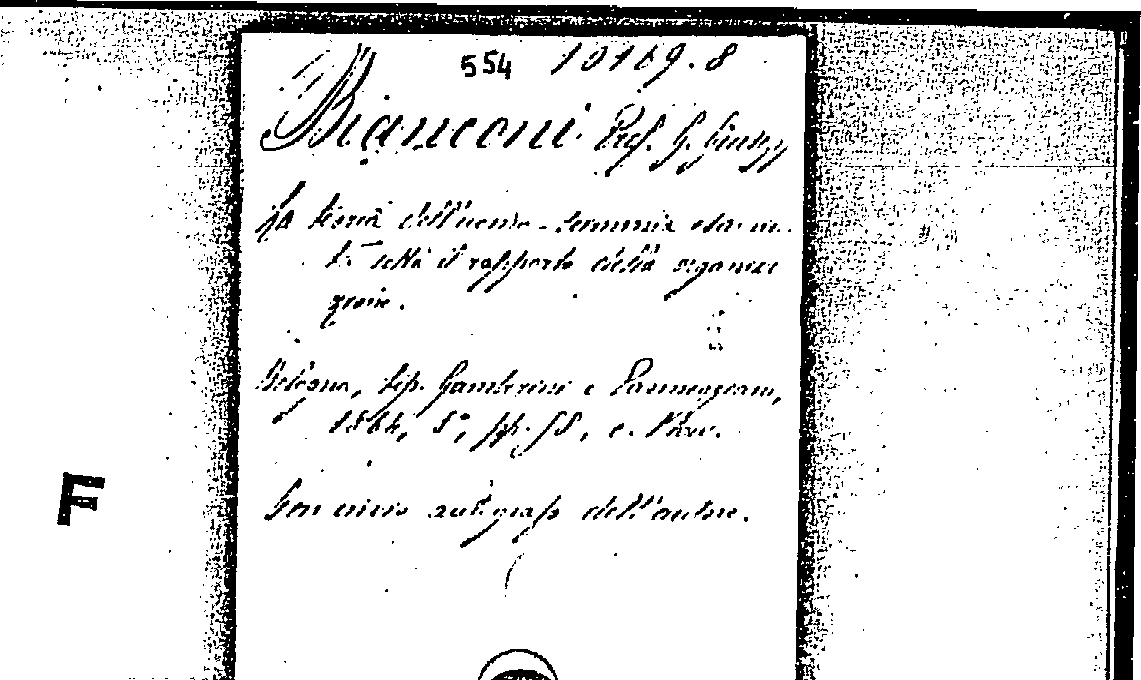 554 10169.8
Bianconi Prof. G. Giusepp
La teoria dell'uomo-scimmia esami-
tà sotto il rapporto della organizza
zione.
Bologna, tip. Gamberini e Parmeggiani,
1864, 8°, pp. c. 1 tav.
Con invio autografo dell'autore.
F